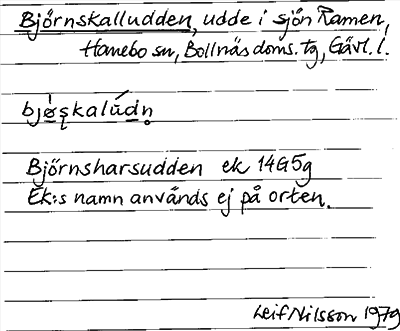 Björnskalludden, udde i sjön Ramen,
Hanebo sn, Bollnäs doms. tg, Gävl. l.
bjǿʂkalúdn̥
Björnsharsudden ek 14G5g
Ek:s namn används ej på orten.
Leif Nilsson 1979